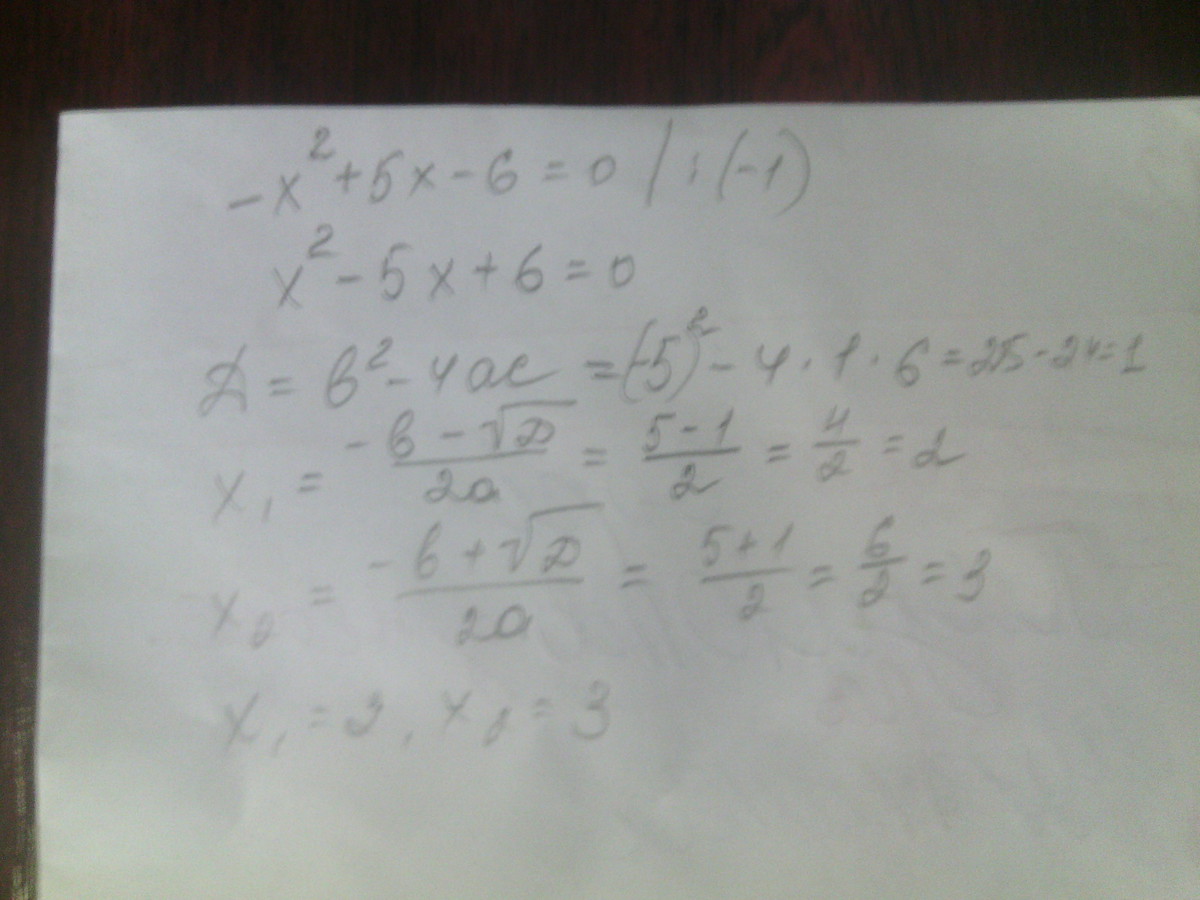 -x² + 5x - 6 = 0 / : (-1)
x² - 5x + 6 = 0
D = b² - 4ac = (-5)² - 4 · 1 · 6 = 25 - 24 = 1
x₁ = (-b - √D)/2a = (5 - 1)/2 = 4/2 = 2
x₂ = (-b + √D)/2a = (5 + 1)/2 = 6/2 = 3
x₁ = 2, x₂ = 3